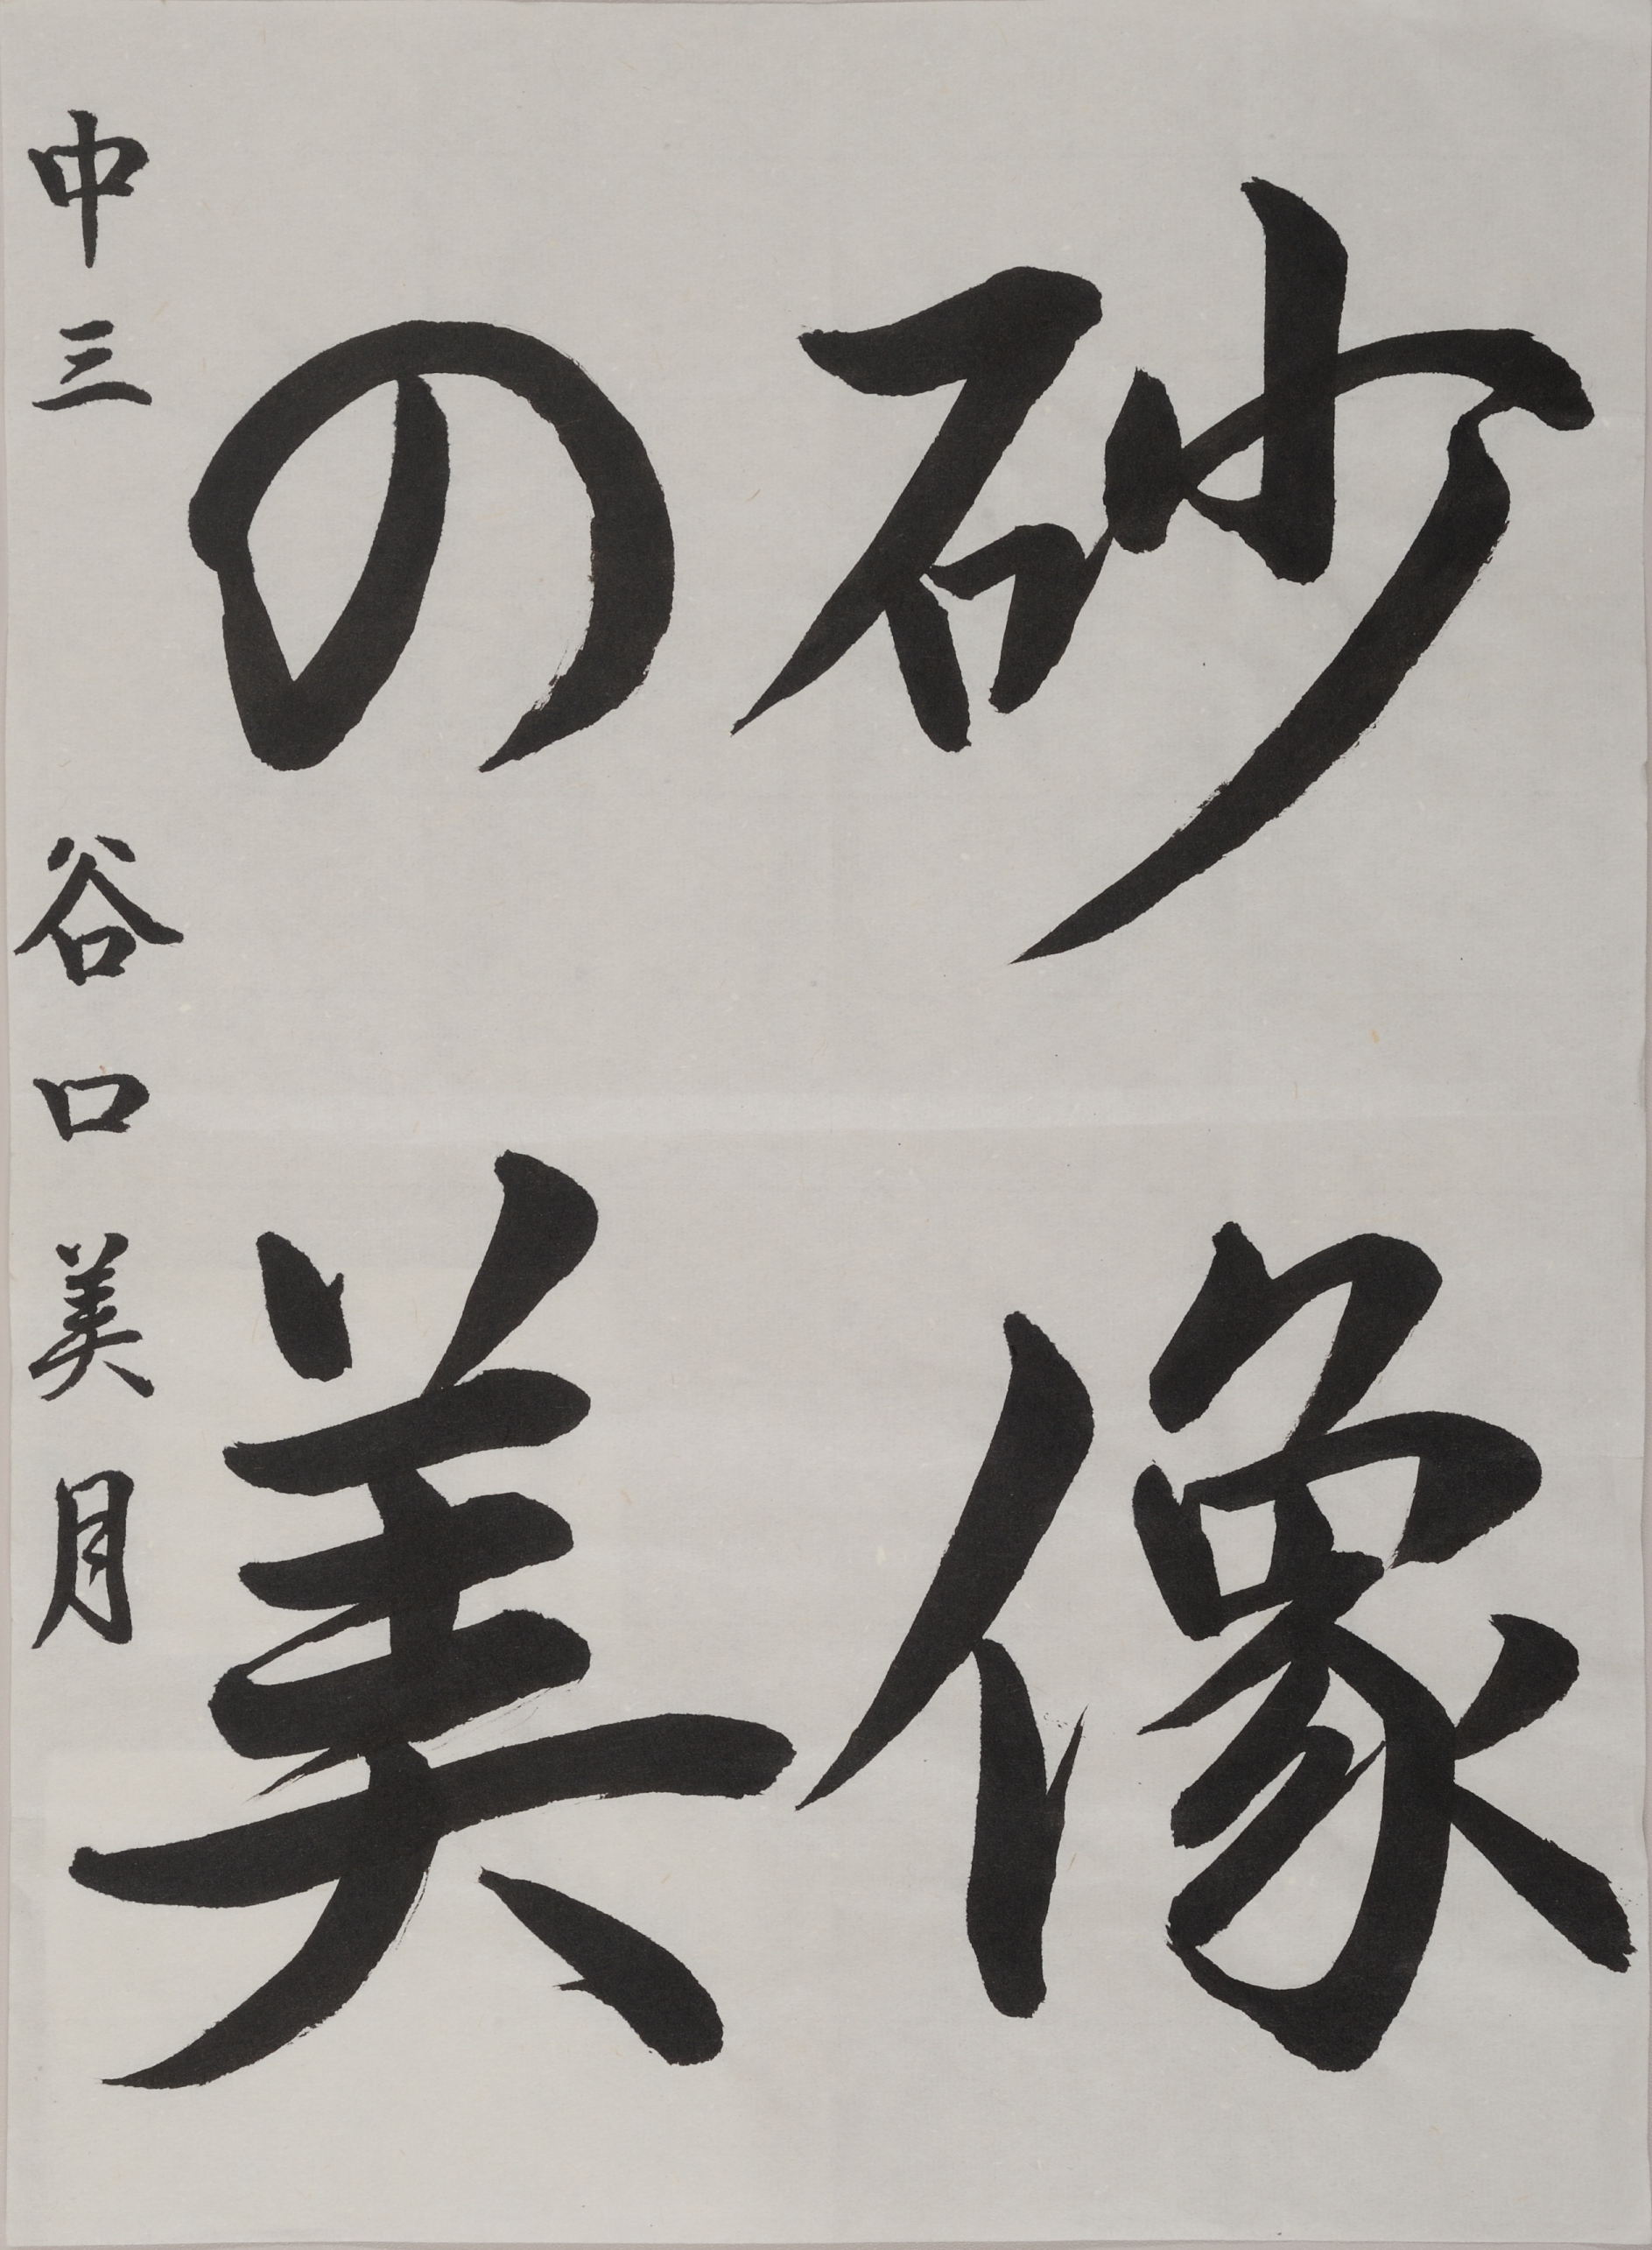 砂像
の美
中三 谷口美月